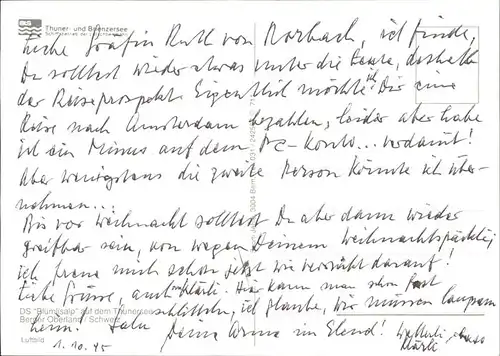 BLS
Thuner- und Brienzersee
Schiffsbetrieb der
Liebe Gräfin Ruth von Rorbach, ich finde,
Du solltest wieder etwas unter die Leute, deshalb
der Reiseprospekt. Eigentlich möchte ich Dir eine
Reise nach Amsterdam bezahlen, leider aber habe
ich ein Minus auf dem PC-Konto... verdamt!
Aber wenigstens die zweite Person könnte ich über-
nehmen...
Bis vor Weihnacht solltest Du aber dann wieder
greifbar sein, von wegen Deinem Weihnachtspäckli,
ich freue mich schon jetzt wie verrückt darauf!
Liebe Grüsse, auch Hier kann man schon fast
schlitteln, ich glaube, wir müssen langsam
heim. Deine Arme im Elend!
DS "Blümlisalp" auf dem Thunersee
Berner Oberland / Schweiz
Luftbild
1.10.95